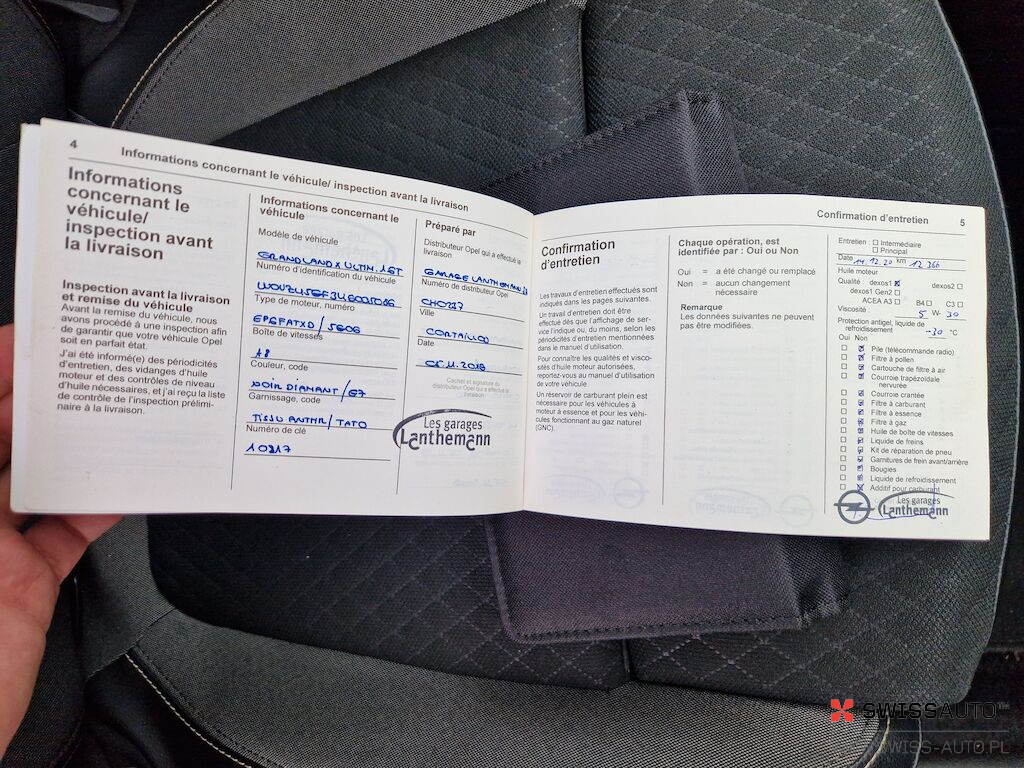 4
Informations concernant le véhicule/ inspection avant la livraison
Informations
concernant le
véhicule/
inspection avant
la livraison
Inspection avant la livraison
et remise du véhicule
Avant la remise du véhicule, nous
avons procédé à une inspection afin
de garantir que votre véhicule Opel
soit en parfait état.
J'ai été informé(e) des périodicités
d'entretien, des vidanges d'huile
moteur et des contrôles de niveau
d'huile nécessaires, et j'ai reçu la liste
de contrôle de l'inspection prélimi-
naire à la livraison.
Informations concernant le
véhicule
Modèle de véhicule
GRANDLAND X ULTIM. 1.6T
Numéro d'identification du véhicule
Type de moteur, numéro
EP6FATXD / 5G06
Boîte de vitesses
A8
Couleur, code
NOIR DIAMANT / G7
Garnissage, code
TISSU ANTHR / TATO
Numéro de clé
10817
Préparé par
Distributeur Opel qui a effectué la
livraison
GARAGE LANTHEMANN SA
Numéro de distributeur Opel
CH0277
Ville
CORTAILLOD
Date
05.11.2018
Cachet et signature du
distributeur Opel qui a effectué la
livraison
Les garages
Lanthemann
Confirmation d'entretien
5
Confirmation
d'entretien
Les travaux d'entretien effectués sont
indiqués dans les pages suivantes.
Un travail d'entretien doit être
effectué dès que l'affichage de ser-
vice l'indique ou, du moins, selon les
périodicités d'entretien mentionnées
dans le manuel d'utilisation.
Pour connaître les qualités et visco-
sités d'huile moteur autorisées,
reportez-vous au manuel d'utilisation
de votre véhicule.
Un réservoir de carburant plein est
nécessaire pour les véhicules à
moteur à essence et pour les véhi-
cules fonctionnant au gaz naturel
(GNC).
Chaque opération, est
identifiée par : Oui ou Non
Oui = a été changé ou remplacé
Non = aucun changement
nécessaire
Remarque
Les données suivantes ne peuvent
pas être modifiées.
Entretien : Intermédiaire
Principal
Date 14.12.20 km 12 366
Huile moteur
Qualité : dexos1 dexos2
dexos1 Gen2
ACEA A3 B4 C3
Viscosité : 5 W- 30
Protection antigel, liquide de
refroidissement -30 °C
Oui Non
Pile (télécommande radio)
Filtre à pollen
Cartouche de filtre à air
Courroie trapézoïdale
nervurée
Courroie crantée
Filtre à carburant
Filtre à essence
Filtre à gaz
Huile de boîte de vitesses
Liquide de freins
Kit de réparation de pneu
Garnitures de frein avant/arrière
Bougies
Liquide de refroidissement
Additif pour carburant
Les garages
Lanthemann
SWISSAUTO
SWISS-AUTO.PL